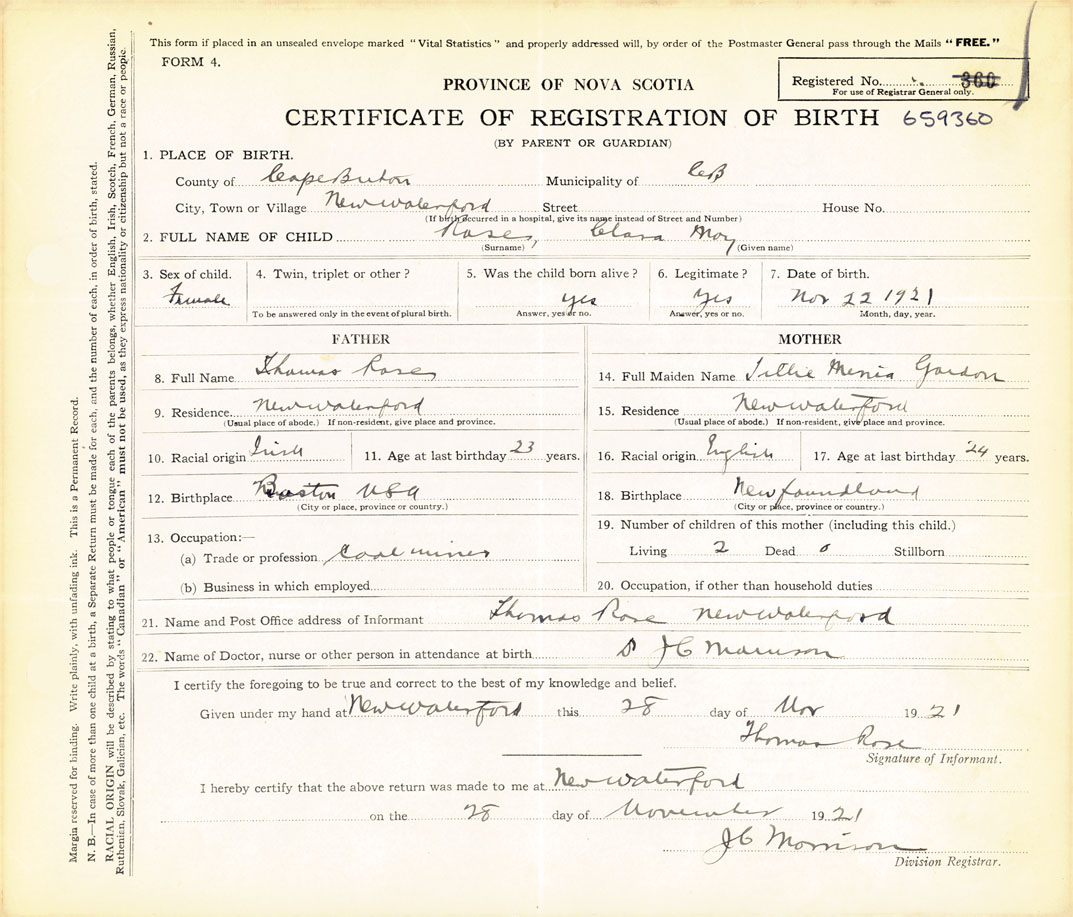 This form if placed in an unsealed envelope marked "Vital Statistics" and properly addressed will, by order of the Postmaster General pass through the Mails "FREE."
FORM 4.
Registered No. 360
For use of Registrar General only.
PROVINCE OF NOVA SCOTIA
CERTIFICATE OF REGISTRATION OF BIRTH 659360
(BY PARENT OR GUARDIAN)
1. PLACE OF BIRTH.
County of Cape Breton Municipality of CB
City, Town or Village New Waterford Street House No.
(If birth occurred in a hospital, give its name instead of Street and Number)
2. FULL NAME OF CHILD Rose, Clara May
(Surname) (Given name)
3. Sex of child. 4. Twin, triplet or other? 5. Was the child born alive? 6. Legitimate? 7. Date of birth.
Female yes yes Nov 22 1921
To be answered only in the event of plural birth. Answer, yes or no. Answer, yes or no. Month, day, year.
FATHER
8. Full Name Thomas Rose
9. Residence New Waterford
(Usual place of abode.) If non-resident, give place and province.
10. Racial origin Irish 11. Age at last birthday 23 years.
12. Birthplace Boston USA
(City or place, province or country.)
13. Occupation:—
(a) Trade or profession Coal miner
(b) Business in which employed
MOTHER
14. Full Maiden Name Gordon
15. Residence New Waterford
(Usual place of abode.) If non-resident, give place and province.
16. Racial origin English 17. Age at last birthday 24 years.
18. Birthplace Newfoundland
(City or place, province or country.)
19. Number of children of this mother (including this child.)
Living 2 Dead 0 Stillborn
20. Occupation, if other than household duties
21. Name and Post Office address of Informant Thomas Rose New Waterford
22. Name of Doctor, nurse or other person in attendance at birth D JC Morrison
I certify the foregoing to be true and correct to the best of my knowledge and belief.
Given under my hand at New Waterford this 28 day of Nov 1921
Thomas Rose
Signature of Informant.
I hereby certify that the above return was made to me at New Waterford
on the 28 day of November 1921
JC Morrison
Division Registrar.
Margin reserved for binding. Write plainly, with unfading ink. This is a Permanent Record.
N. B.—In case of more than one child at a birth, a Separate Return must be made for each, and the number of each, in order of birth, stated.
RACIAL ORIGIN will be described by stating to what people or tongue each of the parents belongs, whether English, Irish, Scotch, French, German, Russian,
Ruthenian, Slovak, Galician, etc. The words "Canadian" or "American" must not be used, as they express nationality or citizenship but not a race or people.